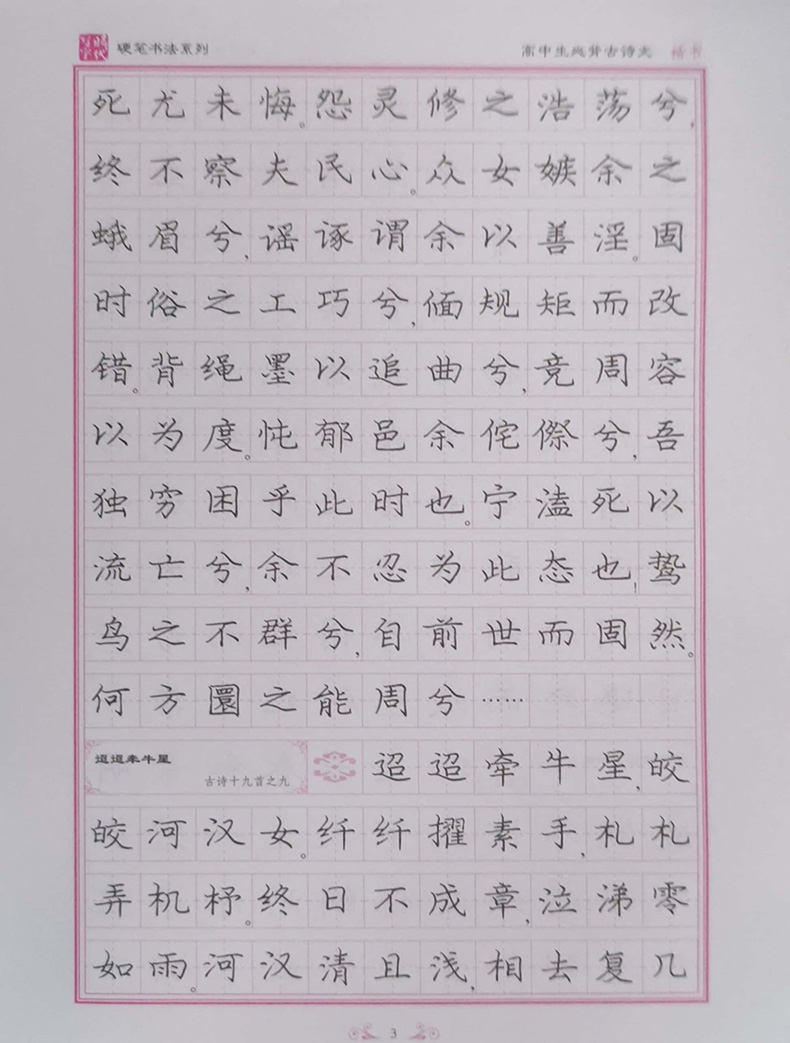 时代
写字
硬笔书法系列
高中生必背古诗文 楷书
死尤未悔。怨灵修之浩荡兮,
终不察夫民心。众女嫉余之
蛾眉兮,谣诼谓余以善淫。固
时俗之工巧兮,偭规矩而改
错。背绳墨以追曲兮,竞周容
以为度。忳郁邑余侘傺兮,吾
独穷困乎此时也。宁溘死以
流亡兮,余不忍为此态也!鸷
鸟之不群兮,自前世而固然。
何方圜之能周兮……
迢迢牵牛星
古诗十九首之九
迢迢牵牛星,皎
皎河汉女。纤纤擢素手,札札
弄机杼。终日不成章,泣涕零
如雨。河汉清且浅,相去复几
3